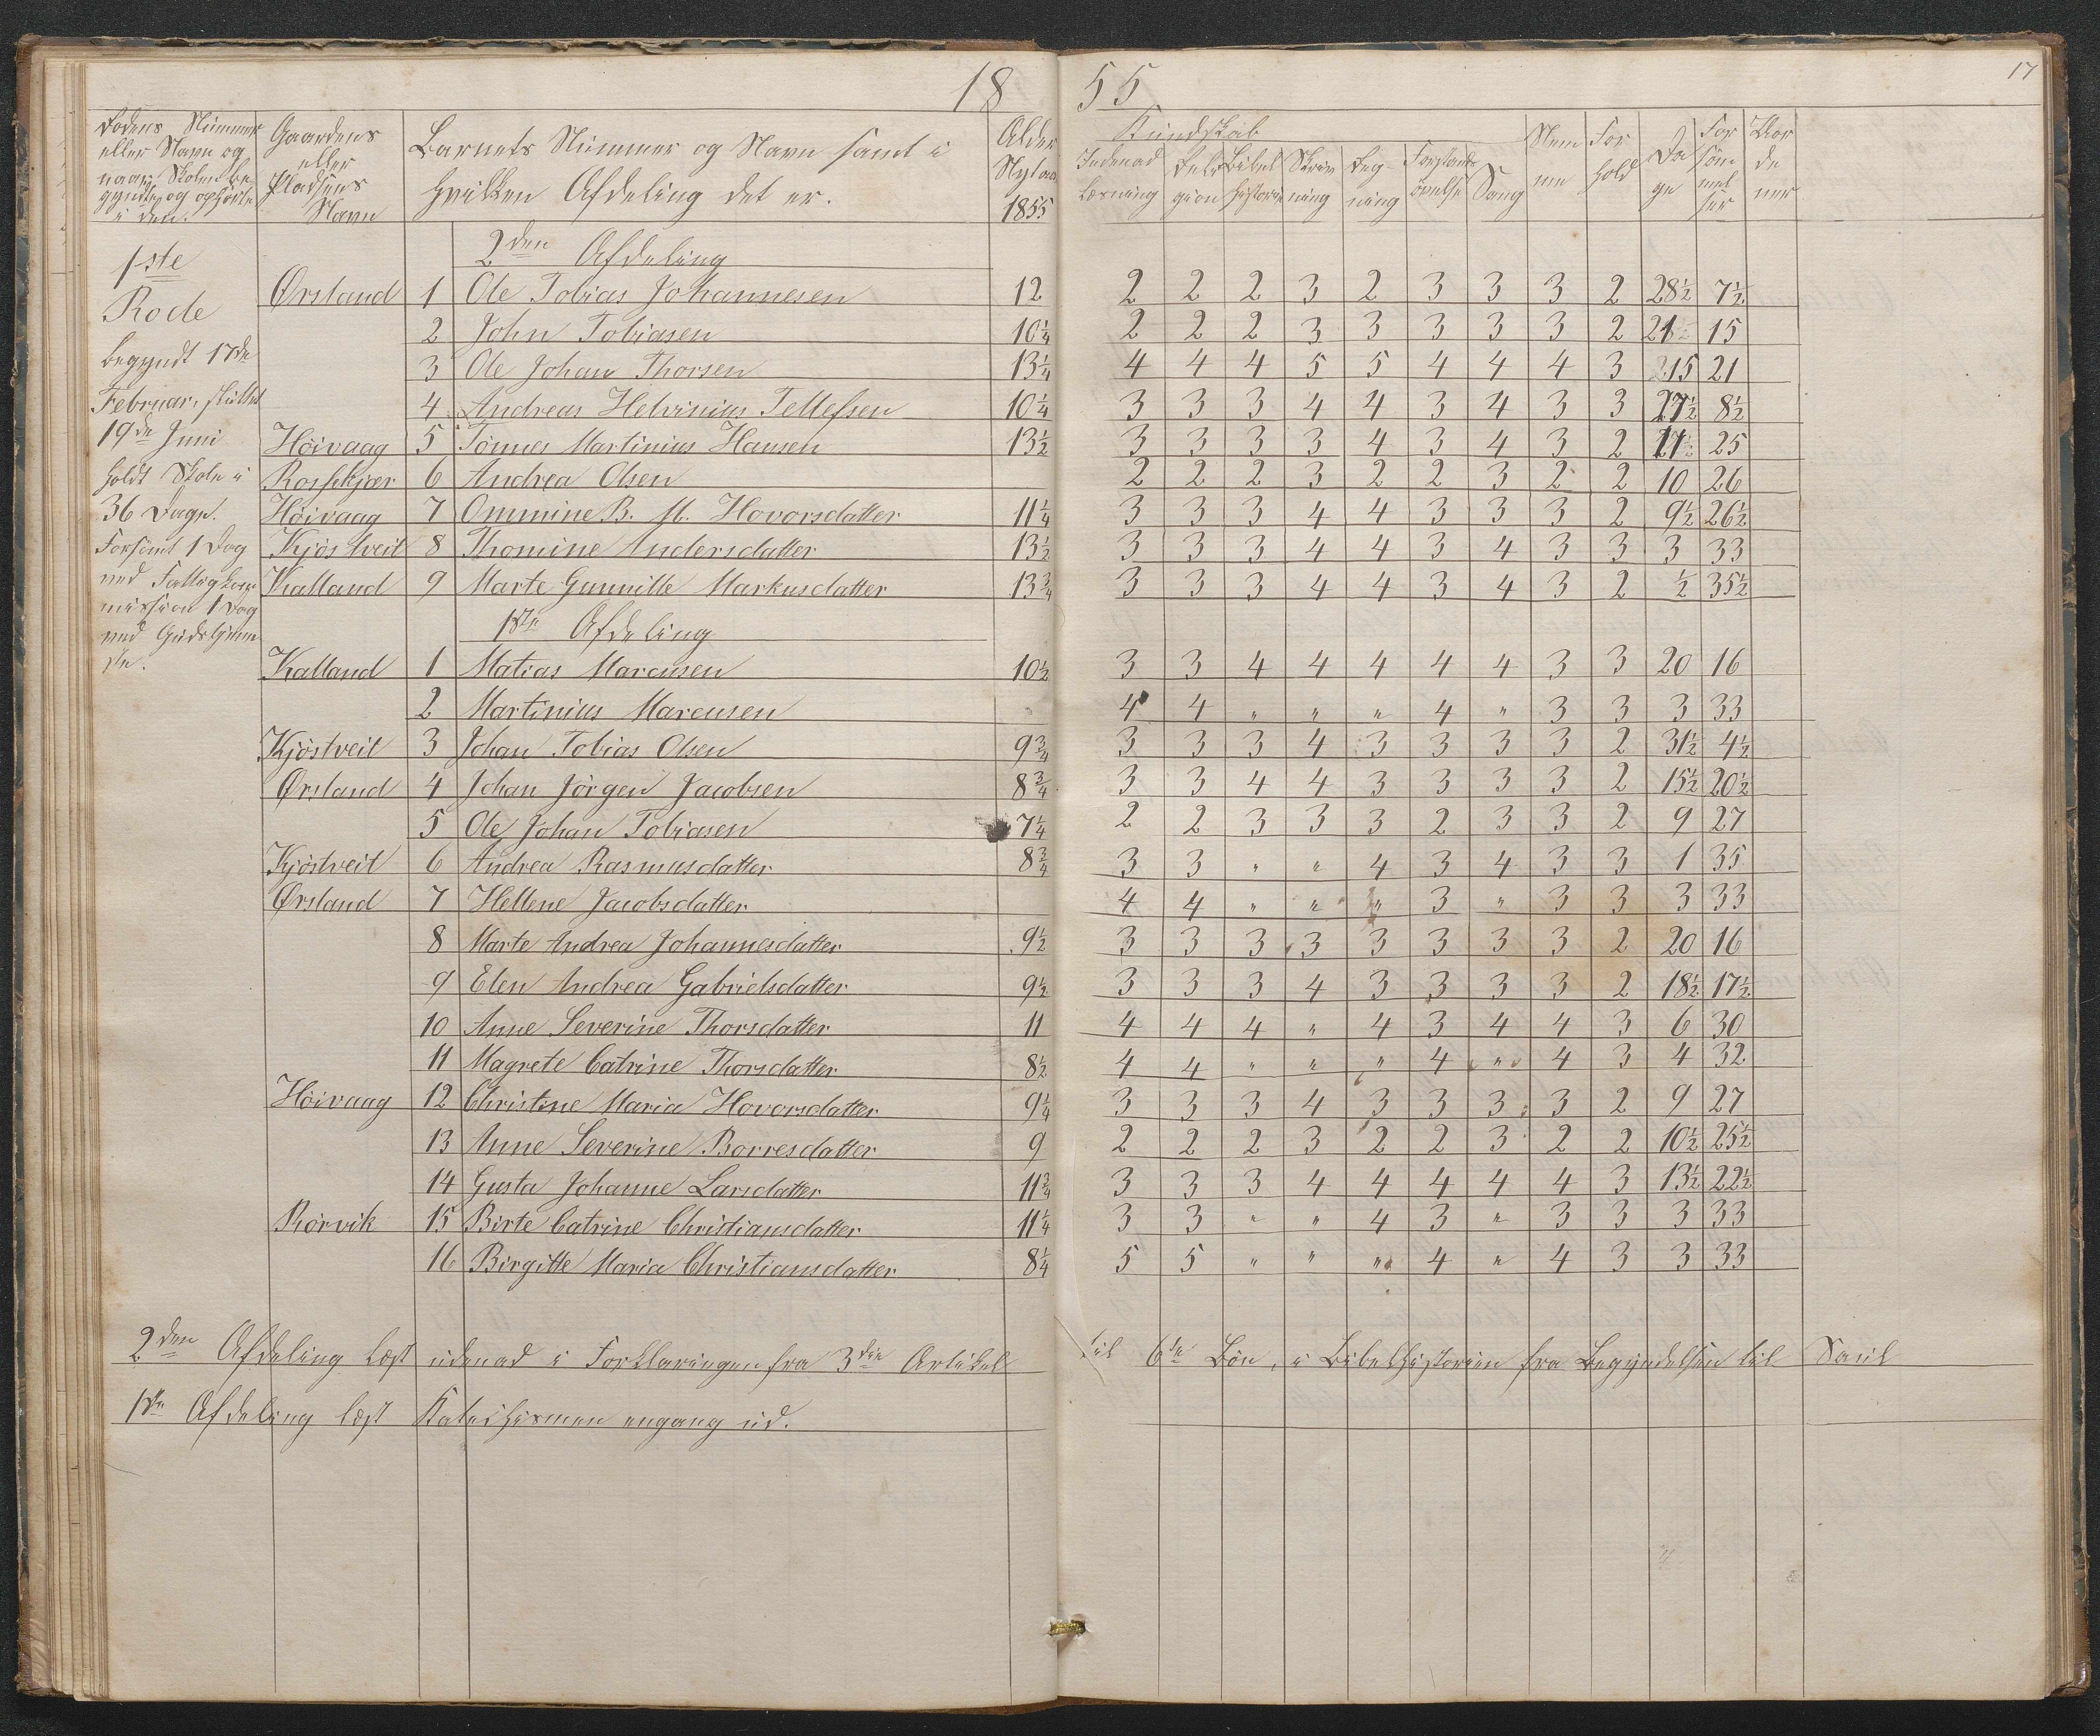 18 55
17
Rodens Nummer eller Navn og naar Skolen begyndte og ophørte i den.
Gaardens eller Pladsens Navn
Barnets Nummer og Navn samt i hvilken Afdeling det er.
Alder Nytaar 1855
Kundskab
Indenad Læsning
Religion
Bibelhistorie
Skrivning
Regning
Forstandsøvelse
Sang
Nemme
Forhold
Dage
Forsømmelser
1ste Rode
begyndt 17de
Februar, sluttet
19de Juni
holdt Skole i
36 Dage.
Forsømt 1 Dag
ved Fattigkommission 1 Dag
ved Gudstjeneste.
2den Afdeling
Ørsland 1 Ole Tobias Johannesen 12 2 2 2 3 2 3 3 3 2 28½ 7½
2 John Tobiasen 10¼ 2 2 2 3 3 3 3 3 2 21 15
3 Ole Johan Thorsen 13¼ 4 4 4 5 5 4 4 4 3 15 21
4 Andreas Helvinius Tellefsen 10¼ 3 3 3 4 4 3 4 3 3 27½ 8½
Höivaag 5 Tönnes Martinius Hansen 13½ 3 3 3 3 4 3 4 3 2 11 25
Rosskjær 6 Andrea Olsen 2 2 2 3 2 2 3 2 2 10 26
Höivaag 7 Ommine B. M. Hovorsdatter 11¼ 3 3 3 4 4 3 3 3 2 9½ 26½
Kjöstveit 8 Thomine Andersdatter 13½ 3 3 3 4 4 3 4 3 3 3 33
Kalland 9 Marte Gunnille Markusdatter 13¾ 3 3 3 4 4 3 4 3 2 ½ 35½
1ste Afdeling
Kalland 1 Matias Marcusen 10½ 3 3 4 4 4 4 4 3 3 20 16
2 Martinius Marcusen 4 4 " " " 4 " 3 3 3 33
Kjöstveit 3 Johan Tobias Olsen 9¾ 3 3 3 4 3 3 3 3 2 31½ 4½
Ørsland 4 Johan Jörgen Jacobsen 8¾ 3 3 4 4 3 3 3 3 2 15½ 20½
5 Ole Johan Tobiasen 7¼ 2 2 3 3 3 2 3 3 2 9 27
Kjöstveit 6 Andrea Rasmusdatter 8¾ 3 3 " " 4 3 4 3 3 1 35
Ørsland 7 Hellene Jacobsdatter 4 4 " " " 3 " 3 3 3 33
8 Marte Andrea Johannesdatter 9½ 3 3 3 3 3 3 3 3 2 20 16
9 Elen Andrea Gabrielsdatter 9½ 3 3 3 4 3 3 3 3 2 18½ 17½
10 Anne Severine Thorsdatter 11 4 4 4 " 4 3 4 4 3 6 30
11 Magrete Catrine Thorsdatter 8½ 4 4 " " " 4 " 4 3 4 32
Höivaag 12 Christine Maria Hovorsdatter 9¼ 3 3 3 4 3 3 3 3 2 9 27
13 Anne Severine Borresdatter 9 2 2 2 3 2 2 3 2 2 10½ 25½
14 Gusta Johanne Larsdatter 11¾ 3 3 3 4 4 4 4 4 3 13½ 22½
Rörvik 15 Birte Catrine Christiansdatter 11¼ 3 3 " " 4 3 " 3 3 3 33
16 Birgitte Maria Christiansdatter 8¼ 5 5 " " " 4 " 4 3 3 33
2den Afdeling læst udenad i Forklaringen fra 3die Artikel til 6te Bön, i Bibelhistorien fra Begyndelsen til Saul
1ste Afdeling læst Katechismen engang ud.